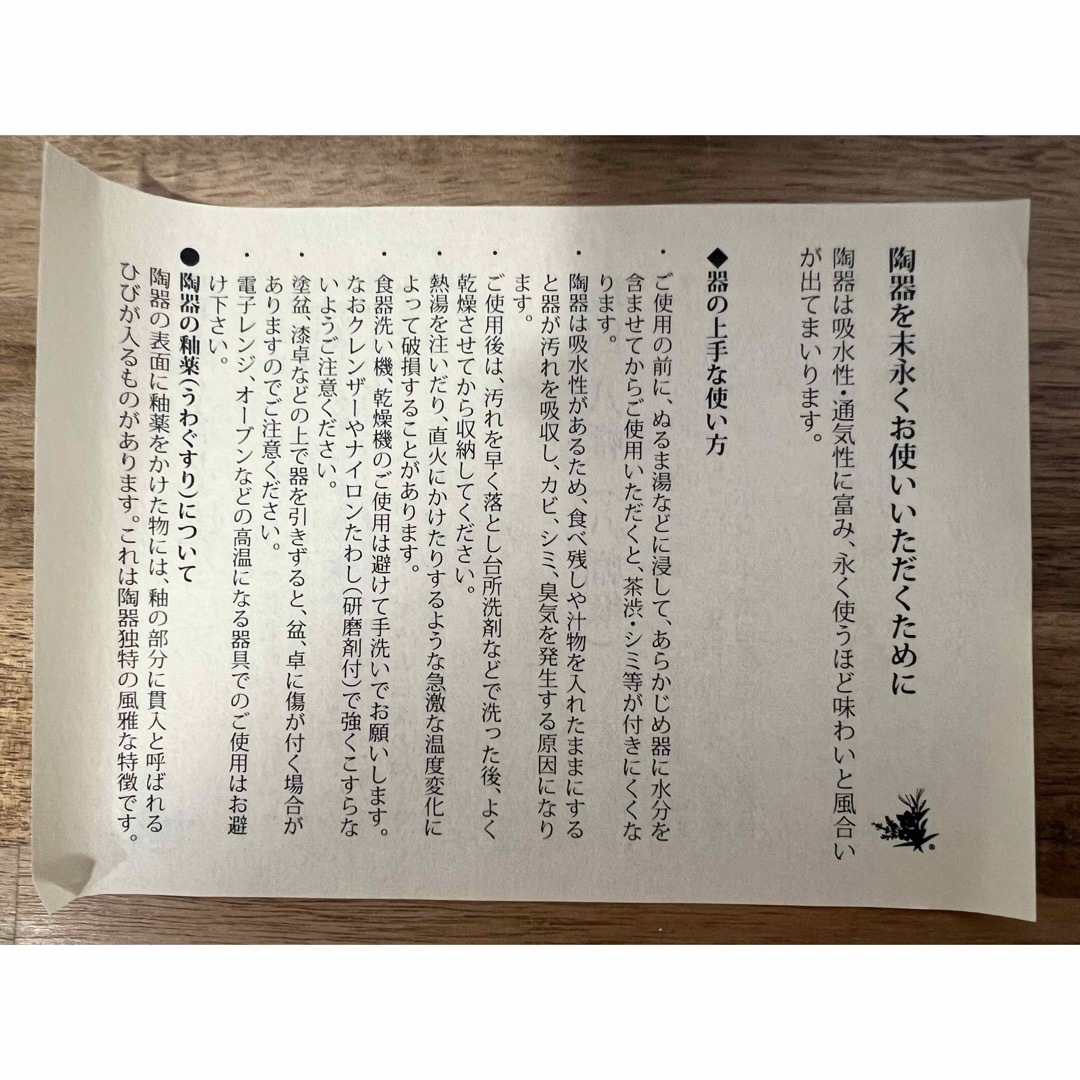 陶器を末永くお使いいただくために
陶器は吸水性・通気性に富み、永く使うほど味わいと風合い
が出てまいります。
◆器の上手な使い方
・ご使用の前に、ぬるま湯などに浸して、あらかじめ器に水分を
含ませてからご使用いただくと、茶渋・シミ等が付きにくくな
ります。
・陶器は吸水性があるため、食べ残しや汁物を入れたままにする
と器が汚れを吸収し、カビ、シミ、臭気を発生する原因になり
ます。
・ご使用後は、汚れを早く落とし台所洗剤などで洗った後、よく
乾燥させてから収納してください。
・熱湯を注いだり、直火にかけたりするような急激な温度変化に
よって破損することがあります。
・食器洗い機、乾燥機のご使用は避けて手洗いでお願いします。
なおクレンザーやナイロンたわし(研磨剤付)で強くこすらな
いようご注意ください。
・塗盆、漆卓などの上で器を引きずると、盆、卓に傷が付く場合が
ありますのでご注意ください。
・電子レンジ、オーブンなどの高温になる器具でのご使用はお避
け下さい。
●陶器の釉薬(うわぐすり)について
陶器の表面に釉薬をかけた物には、釉の部分に貫入と呼ばれる
ひびが入るものがあります。これは陶器独特の風雅な特徴です。
®